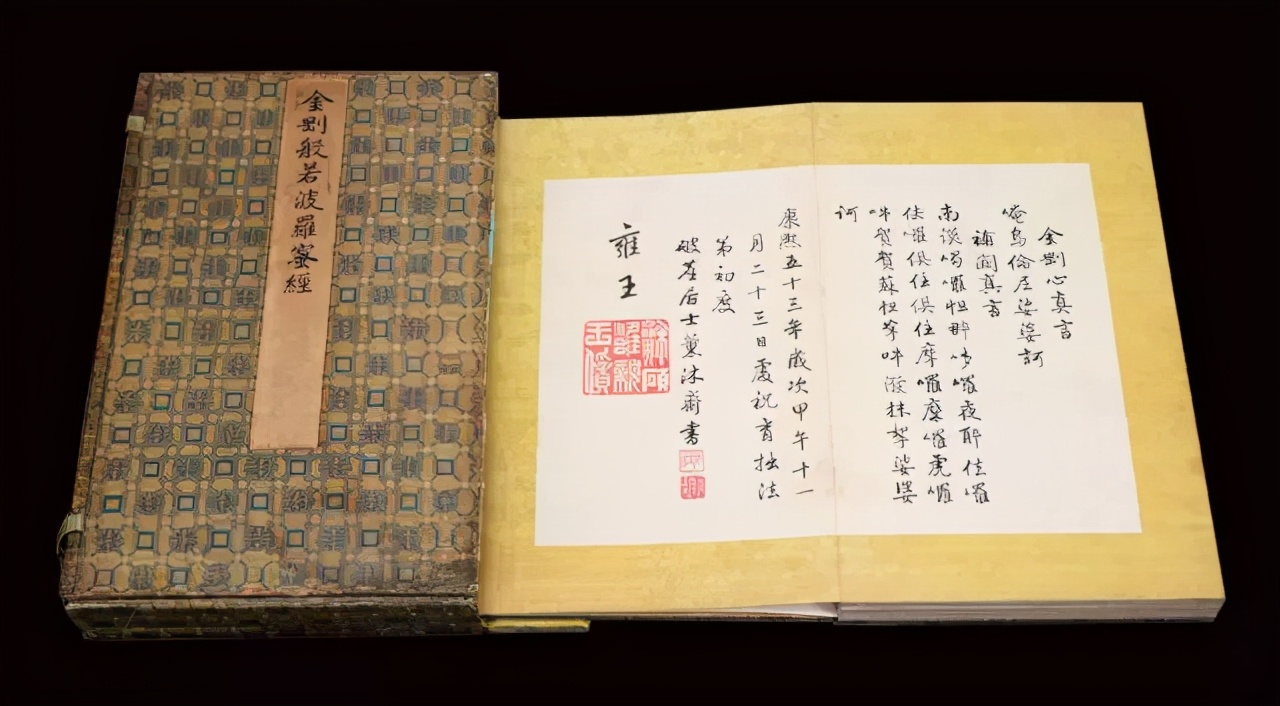 金剛般若波羅蜜經
金剛心真言
唵烏倫尼娑婆訶
補闕真言
南謨喝囉怛那哆囉夜耶佉囉
佉囉俱住俱住摩囉摩囉虎囉
吽賀賀蘇怛拏吽潑抹拏娑婆
訶
康熙五十三年歲次甲午十一
月二十三日虔祝育拙法
弟初度
破塵居士薰沐齋書
雍王